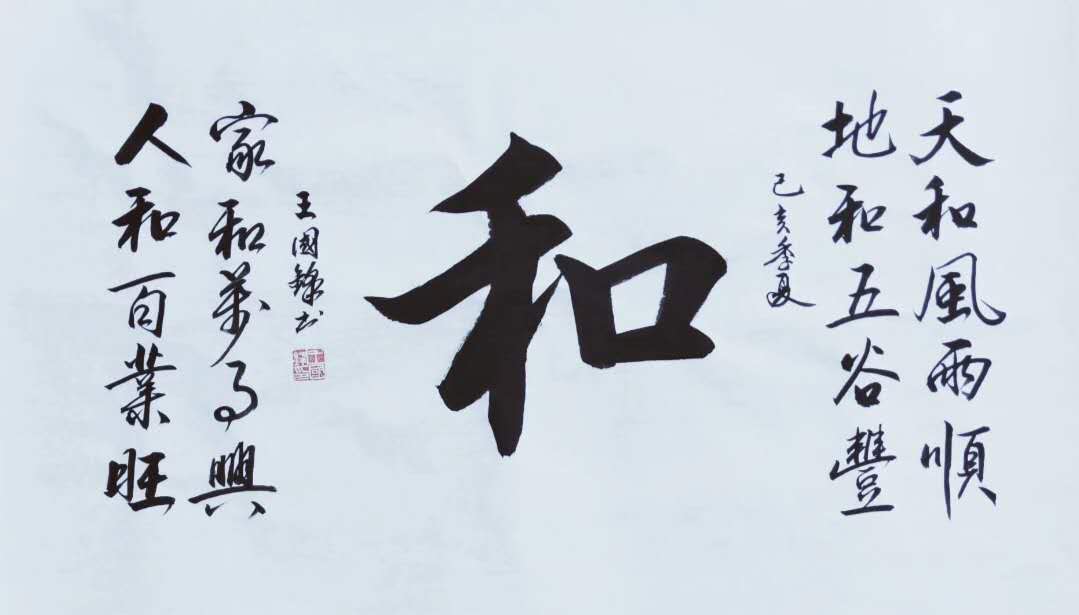 天和風雨順
地和五谷豐
己亥季夏
和
王國鋒书
家和萬事興
人和百業旺